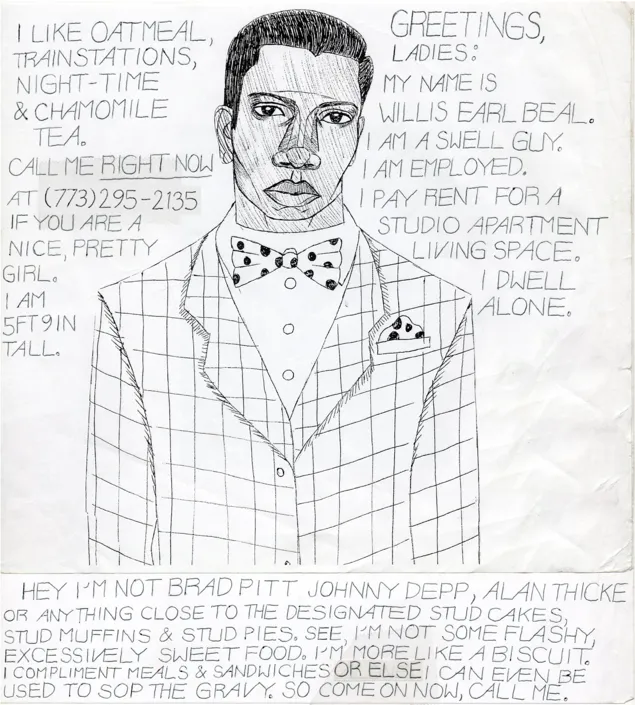 I LIKE OATMEAL,
TRAINSTATIONS,
NIGHT-TIME
& CHAMOMILE
TEA.
CALL ME RIGHT NOW
AT (773)295-2135
IF YOU ARE A
NICE, PRETTY
GIRL.
I AM
5FT 9IN
TALL.
GREETINGS,
LADIES:
MY NAME IS
WILLIS EARL BEAL.
I AM A SWELL GUY.
I AM EMPLOYED.
I PAY RENT FOR A
STUDIO APARTMENT
LIVING SPACE.
I DWELL
ALONE.
HEY I'M NOT BRAD PITT JOHNNY DEPP, ALAN THICKE
OR ANYTHING CLOSE TO THE DESIGNATED STUD CAKES,
STUD MUFFINS & STUD PIES. SEE, I'M NOT SOME FLASHY,
EXCESSIVELY SWEET FOOD. I'M MORE LIKE A BISCUIT.
I COMPLIMENT MEALS & SANDWICHES OR ELSE I CAN EVEN BE
USED TO SOP THE GRAVY. SO COME ON NOW, CALL ME.